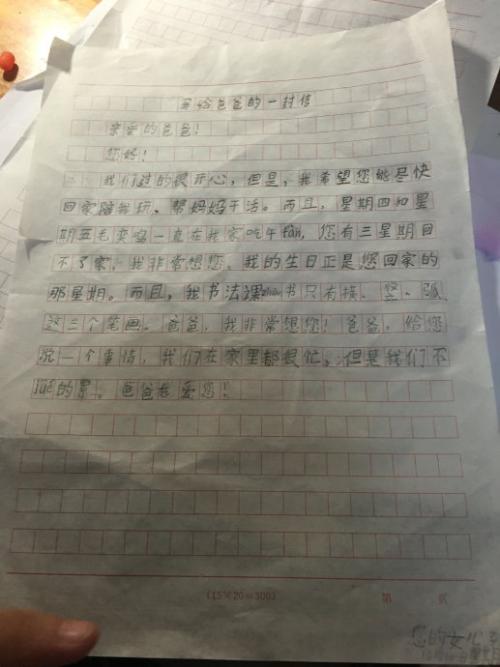 写给爸爸的一封信
亲爱的爸爸!
您好!
我们过的很开心,但是,我希望您能尽快
回家陪我玩、帮妈妈干活。而且,星期四和星
期五毛奕鸣一直在我家吃午fàn,您有三星期回
不了家,我非常想您,我的生日正是您回家的
那星期。而且,我书法课书只有横、竖、弧
这三个笔画。爸爸,我非常想您!爸爸,给您
说一个事情,我们在家里都很忙,但是我们不
jué的累。爸爸我爱您!
(15×20=300)
第 页
您的女儿